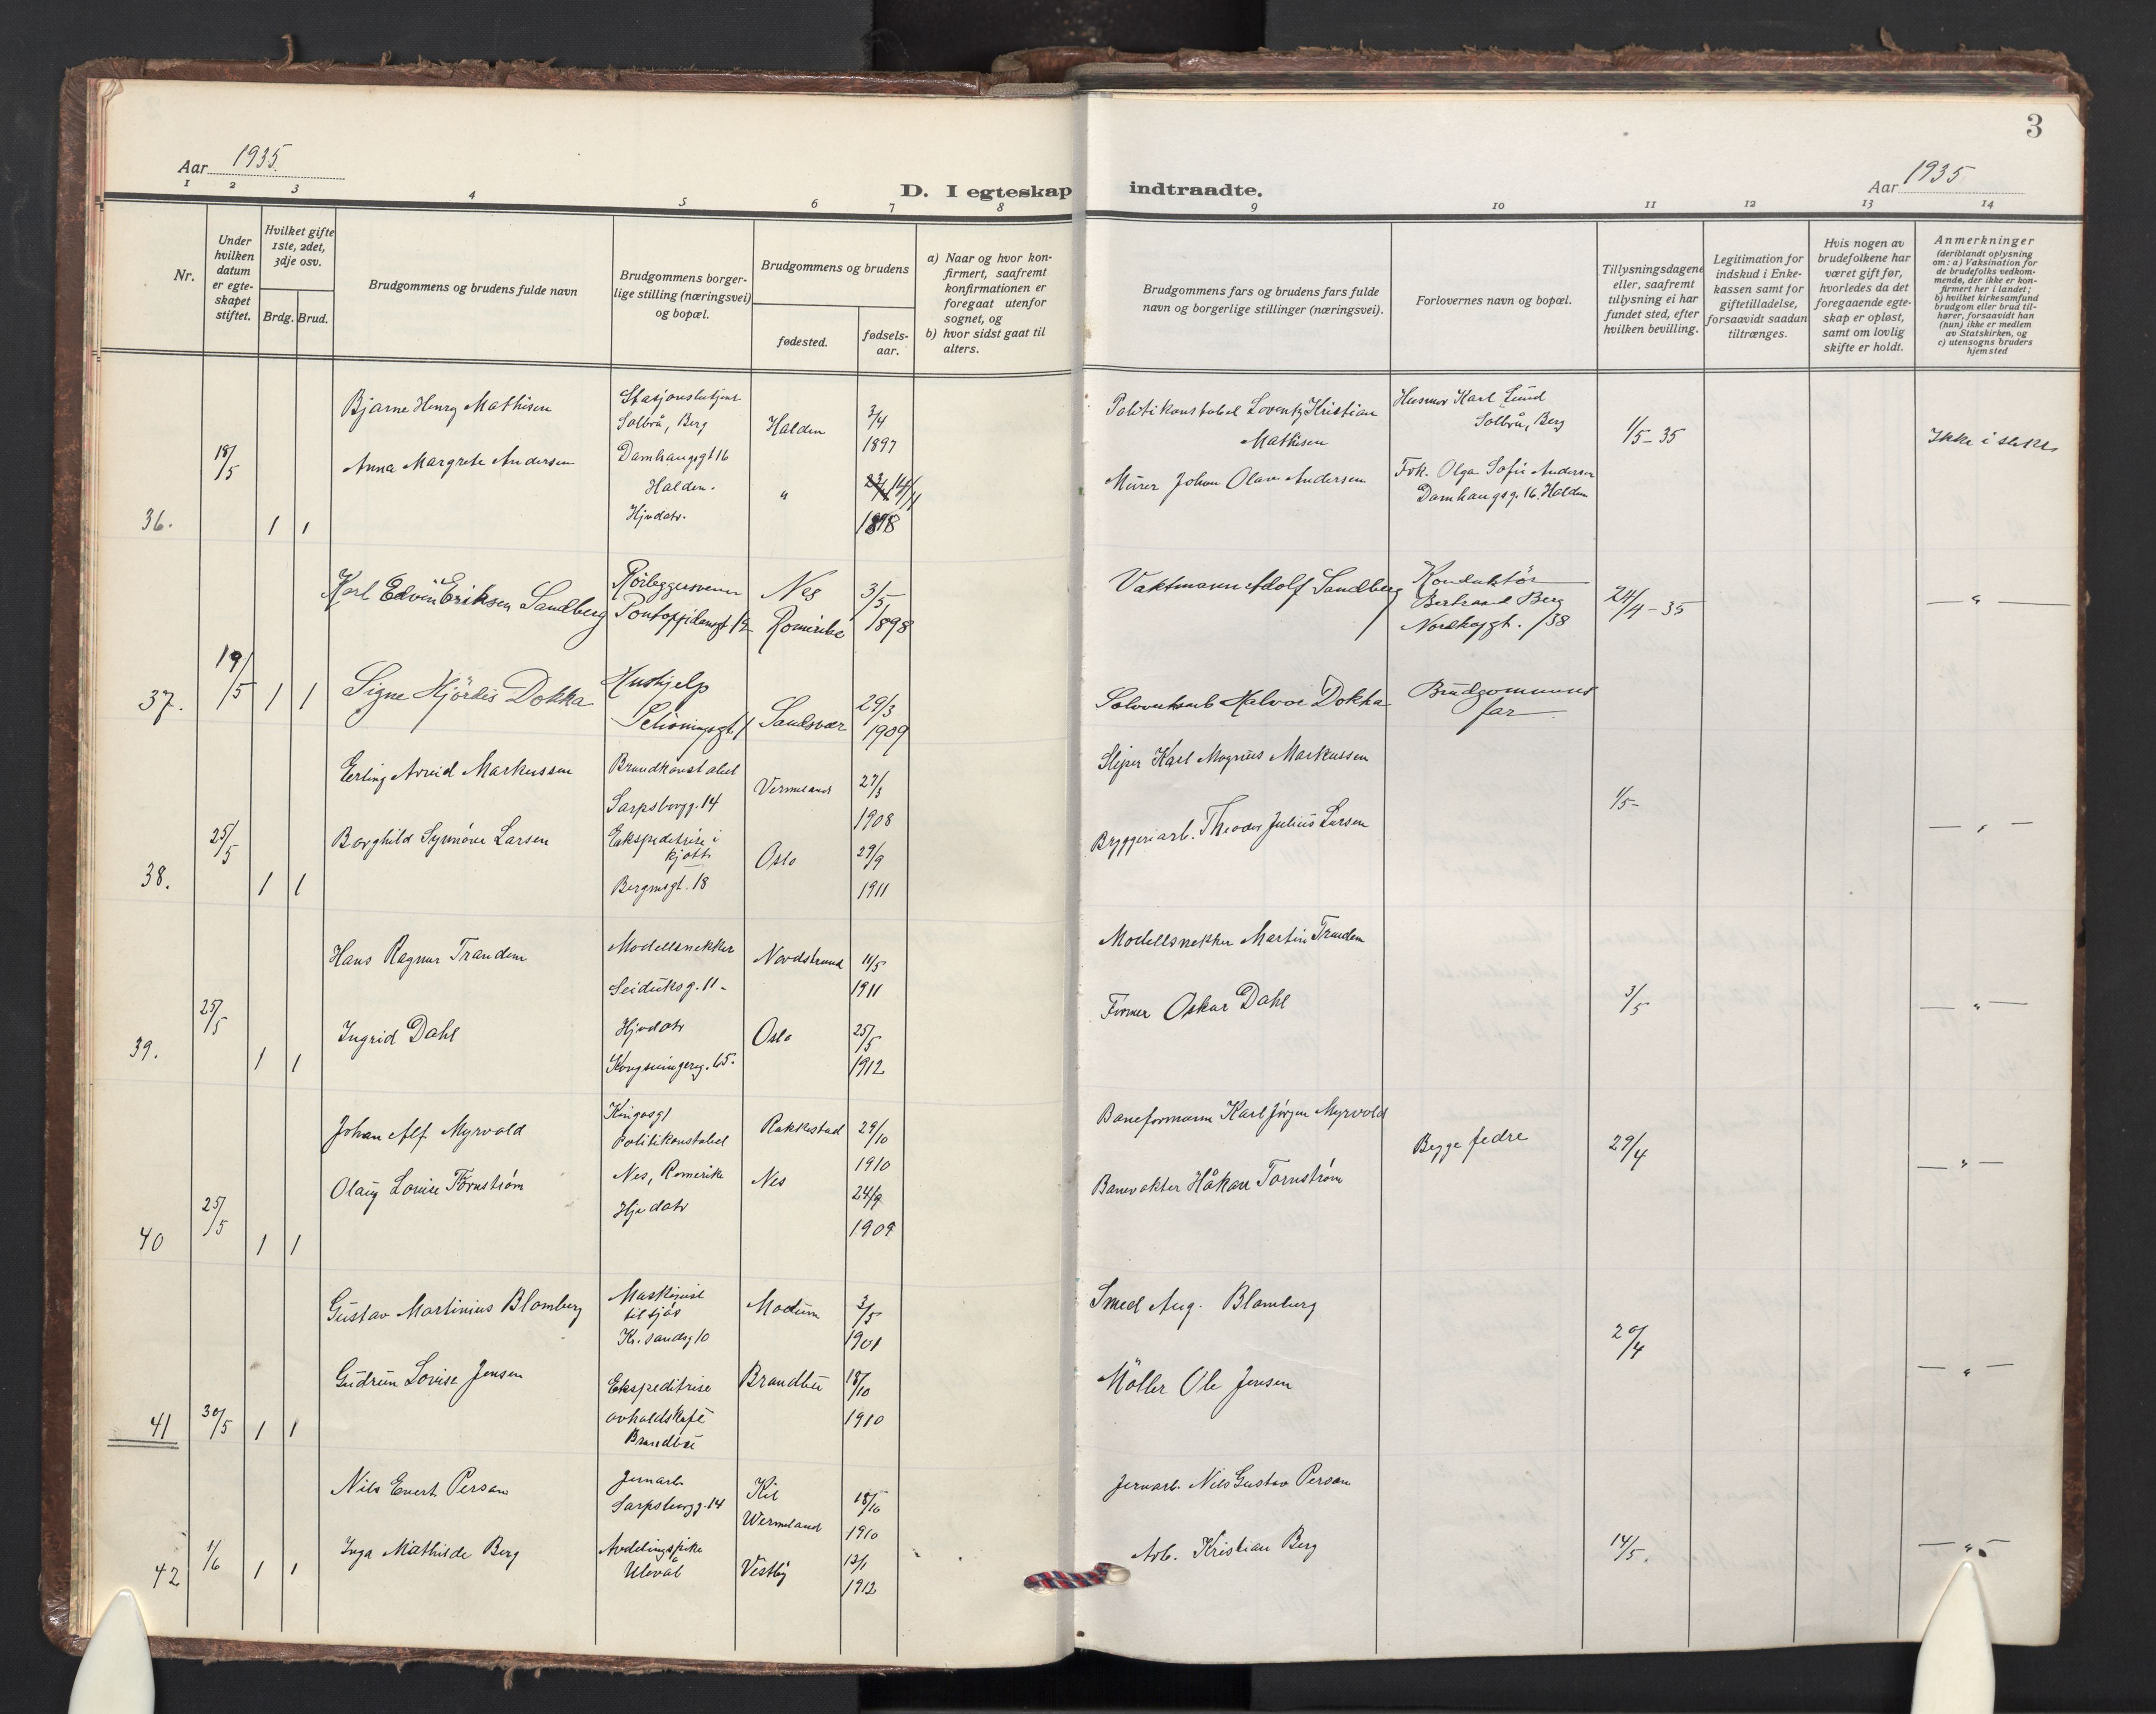 3
Aar 1935.
Aar 1935
D. I egteskap indtraadte.
1 2 3 4 5 6 7 8 9 10 11 12 13 14
Nr.
Under hvilken datum er egte-skapet stiftet.
Hvilket gifte 1ste, 2det, 3dje osv.
Brdg. Brud.
Brudgommens og brudens fulde navn
Brudgommens borger-
lige stilling (næringsvei)
og bopæl.
Brudgommens og brudens
fødested.
fødsels-
aar.
a) Naar og hvor kon-
firmert, saafremt
konfirmationen er
foregaat utenfor
sognet, og
b) hvor sidst gaat til
alters.
Brudgommens fars og brudens fars fulde
navn og borgerlige stillinger (næringsvei).
Forlovernes navn og bopæl.
Tillysningsdagene
eller, saafremt
tillysning ei har
fundet sted, efter
hvilken bevilling.
Legitimation for
indskud i Enke-
kassen samt for
giftetilladelse,
forsaavidt saadan
tiltrænges.
Hvis nogen av
brudefolkene har
været gift før,
hvorledes da det
foregaaende egte-
skap er opløst,
samt om lovlig
skifte er holdt.
Anmerkninger
(deriblandt oplysning
om: a) Vaksination for
de brudefolks vedkom-
mende, der ikke er kon-
firmert her i landet;
b) hvilket kirkesamfund
brudgom eller brud til-
hører, forsaavidt han
(hun) ikke er medlem
av Statskirken, og
c) utensogns bruders
hjemsted
36.
18/5
1 1
Bjarne Henry Mathisen
Anna Margrete Andersen
Solbrå, Berg
Damhaugsgt 16
Halden.
Hjvdatr.
Halden
"
3/4
1897
14/11
1898
Politikonstabel Lorentz Kristian
Mathisen
Murer Johan Olav Andersen
Karl Lund
Solbrå, Berg
Frk. Olga Sofie Andersen
Damhaugsg. 16, Halden
1/5-35
Ikke i slekt
37.
19/5
1 1
Karl Edvin Eriksen Sandberg
Signe Hjördis Dokka
Rörleggersvenn
Pontoppidansgt 12
Hushjelp
Nes
Romerike
Sandsvær
3/5
1898
29/3
1909
Vaktmann Adolf Sandberg
Halvor Dokka
Konduktör
Bertrand Berg
Brudgommens
far
24/4-35
— " —
38.
25/5
1 1
Erling Arvid Markussen
Borghild Synnöve Larsen
Brandkonstabel
Sarpsborgg. 14
Ekspeditrise i
kjött
Bergensgt. 18
Vermeland
Oslo
27/3
1908
29/9
1911
Sliper Karl Magnus Markussen
Bryggeriarb. Theodor Julius Larsen
1/5-
— " —
39.
25/5
1 1
Hans Ragnar Trandem
Ingrid Dahl
Modellsnekker
Seiduksg. 11-
Hjvdatr
Kongsvingerg. 15.
Nordstrand
Oslo
11/5
1911
25/5
1912
Modellsnekker Martin Trandem
Former Oskar Dahl
3/5
— " —
40
25/5
1 1
Johan Alf Myrvold
Olaug Louise Törnström
Kingosgt
Politikonstabel
Nes, Romerike
Hjvdatr
Rakkestad
Nes
29/10
1910
24/9
1909
Baneformann Karl Jörgen Myrvold
Banevakter Håkan Törnström
Begge fedre
29/4
— " —
41
30/5
1 1
Gustav Martinius Blomberg
Gudrun Lovise Jensen
Maskinist
til sjøs
Kr.sandsg 10
Ekspeditrise
avholdskafé
Brandbu
Modum
Brandbu
3/5
1901
18/10
1910
Smed Aug. Blomberg
Möller Ole Jensen
20/4
— " —
42
1/6
1 1
Nils Evert Persson
Inga Mathilde Berg
Jernarb.
Sarpsborgg. 14
Avdelingspike
Ulevål
Kil
Wermeland
Vestby
18/10
1910
13/1
1912
Jernarb. Nils Gustav Persson
Arb. Kristian Berg
14/5.
— " —